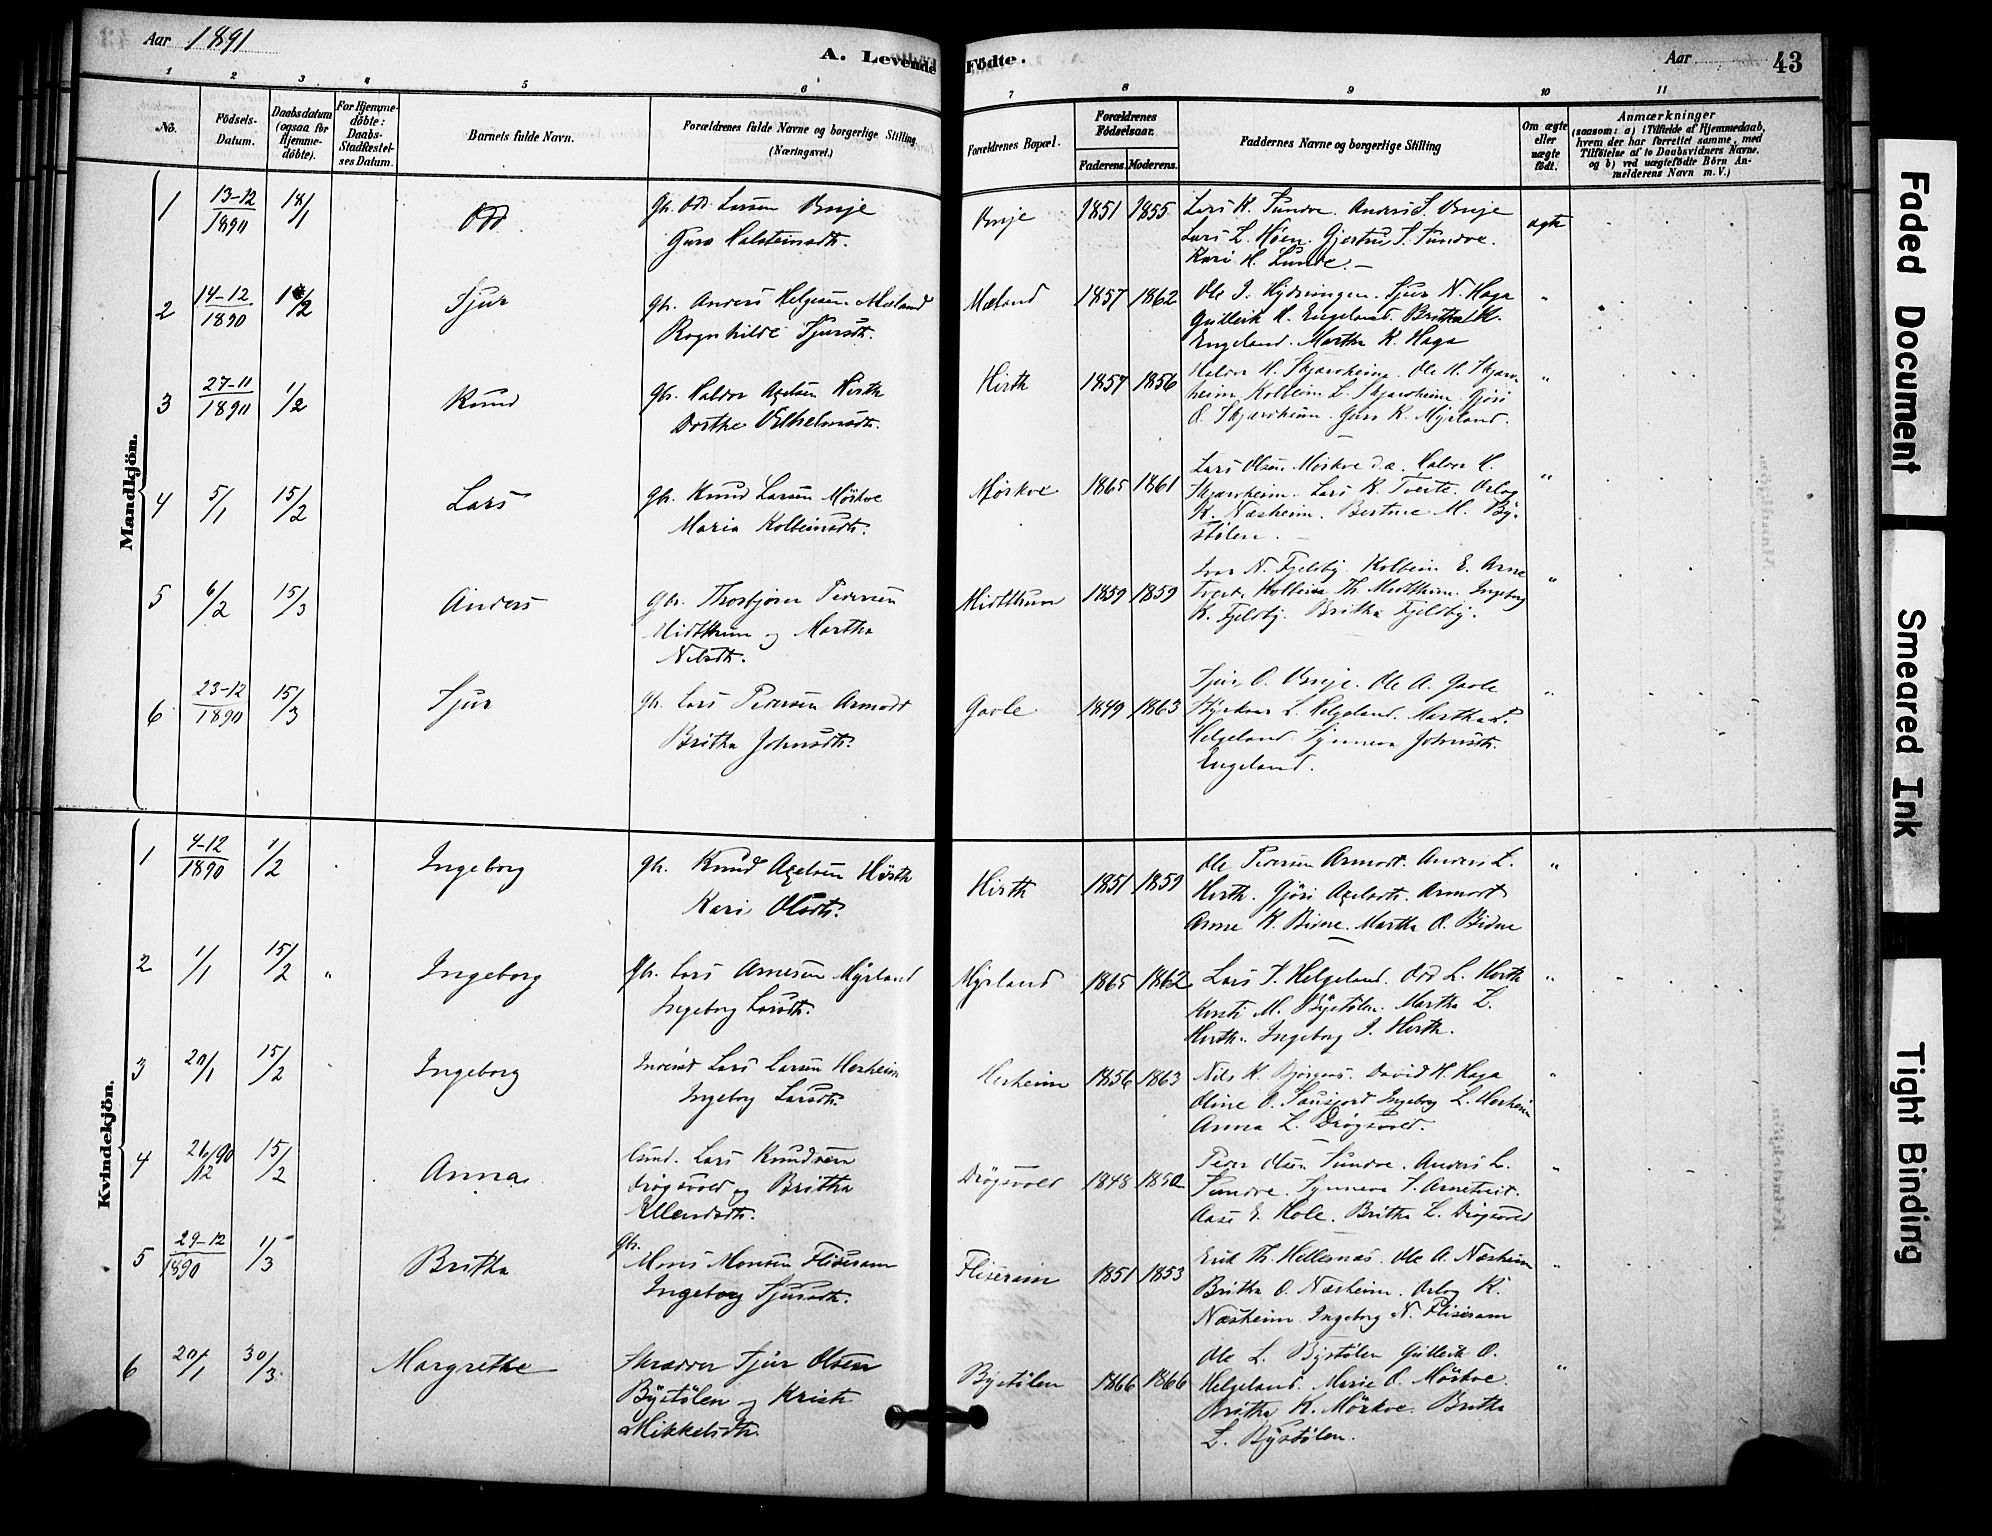 Aar 1891
A. Levende Födte.
Aar
43
1 2 3 4 5 6 7 8 9 10 11
No.
Födsels-
Datum.
Daabsdatum
(ogsaa for
Hjemme-
döbte).
For Hjemme-
döbte:
Daabs-
Stadfæstel-
ses Datum.
Barnets fulde Navn.
Forældrenes fulde Navne og borgerlige Stilling
(Næringsvei.)
Forældrenes Bopæl.
Forældrenes
Födselsaar.
Faderens. Moderens.
Faddernes Navne og borgerlige Stilling
Om ægte
eller
uægte
födt.
Anmærkninger
(saasom: a) i Tilfælde af Hjemmedaab,
hvem der har forrettet samme, med
Tilföielse af to Daabsvidners Navne,
og b) ved uægtefödte Börn An-
melderens Navn m. V.)
Mandkjön.
1 13-12 1890 18/1 Odd Gbr. Odd Larsen
Guro Halsteinsdtr.
1851 1855 Lars K. Sundve. Anders S.
Lars L. Høen. Gjertrud S. Sundve.
Kari H. Lunde. —
ægte
2 14-12 1890 1/2 Sjur Gbr. Anders Helgesen Mæland
Ragnhilde Sjursdtr.
Mæland 1857 1862 Ole I. Hydningen. Sjur N. Haga
Gulleik H. Engeland. Britha H.
Engeland. Martha K. Haga
"
3 27-11 1890 1/2 Knud Gbr. Haldor Axelsen Hirth
Dorthe Vilhelmsdtr.
Hirth 1857 1856 Haldor H. Skjærvheim. Ole H. Skjærv-
heim Kolbein L. Skjærvheim. Gjøri
O. Skjærvheim. Guro K. Myrland.
"
4 5/1 15/2 Lars Gbr. Knud Larsen Mörkve
Maria Kolbeinsdtr.
Mørkve 1865 1861 Lars Olsen Mørkve d.æ. Halvor H.
Skjærvheim. Lars K. Tverte. Orlog
K. Næsheim. Bertine M. By-
stölen. —
"
5 6/2 15/3 Anders Gbr. Thorbjørn Pedersen
Midttun og Martha
Nilsdtr.
Midttun 1859 1859 Ivar N. Fjeldby Kolbein E. Arne
Tverte. Kolbein Th. Midttun. Ingeborg
K. Fjeldby. Britha Fjeldby.
"
6 23-12 1890 15/3 Sjur Gbr. Lars Pedersen Armodt
Britha Johnsdtr.
Gavle 1849 1863 Sjur O. Ole A. Gavle
L. Helgeland. Martha L.
Helgeland Synneva Johnsdtr.
Engeland.
"
Kvindekjön.
1 4-12 1890 1/2 Ingeborg Gbr. Knud Axelsen Hirth
Kari Olsdtr.
Hirth 1851 1859 Ole Pedersen Armodt. Anders L.
Herth. Gjøri Axelsdtr. Armodt
Anne K. Bidne. Martha O. Bidne
"
2 1/1 15/2 " Ingeborg Gbr. Lars Arnesen Myrland
Ingeborg Larsdtr.
Myrland 1865 1862 Lars T. Helgeland. Odd L. Herth
Kristi M. Bystølen. Martha L.
Herth. Ingeborg I. Herth.
"
3 20/1 15/2 Ingeborg Inderst Lars Larsen Herheim
Ingeborg Larsdtr.
Herheim 1856 1863 Nils K. Bjørgum. David H. Haga
Oline O. Ingeborg L. Herheim
Anna L. Drögsvold.
"
4 26/12 90 15/2 Anna Lars Knudsen
Drögsvold og Britha
Ellendsdtr.
Drögsvold 1848 1850 Peder Olsen Sundve. Anders L.
Sundve. Synneva S. Arnetveit.
Aase E. Hole. Britha L. Drögsvold
"
5 29-12 1890 1/3 Britha Gbr.
Mons Monsen Fliseram
Ingeborg Sjursdtr.
Fliseram 1851 1853 Erik Th. Hellesnæs. Ole A. Næsheim
Britha O. Næsheim. Orlog K.
Næsheim Ingeborg N. Fliseram
"
6 20/1 30/3 Margrethe Skrædder Sjur Olsen
Bystölen og Kristi
Mikkelsdtr.
Bystölen 1866 1866 Ole L. Bystölen Gulleik O.
Helgeland. Marie O. Mörkve.
Britha K. Mörkve. Britha
L. Bystölen.
"
Faded Document
Smeared Ink
Tight Binding